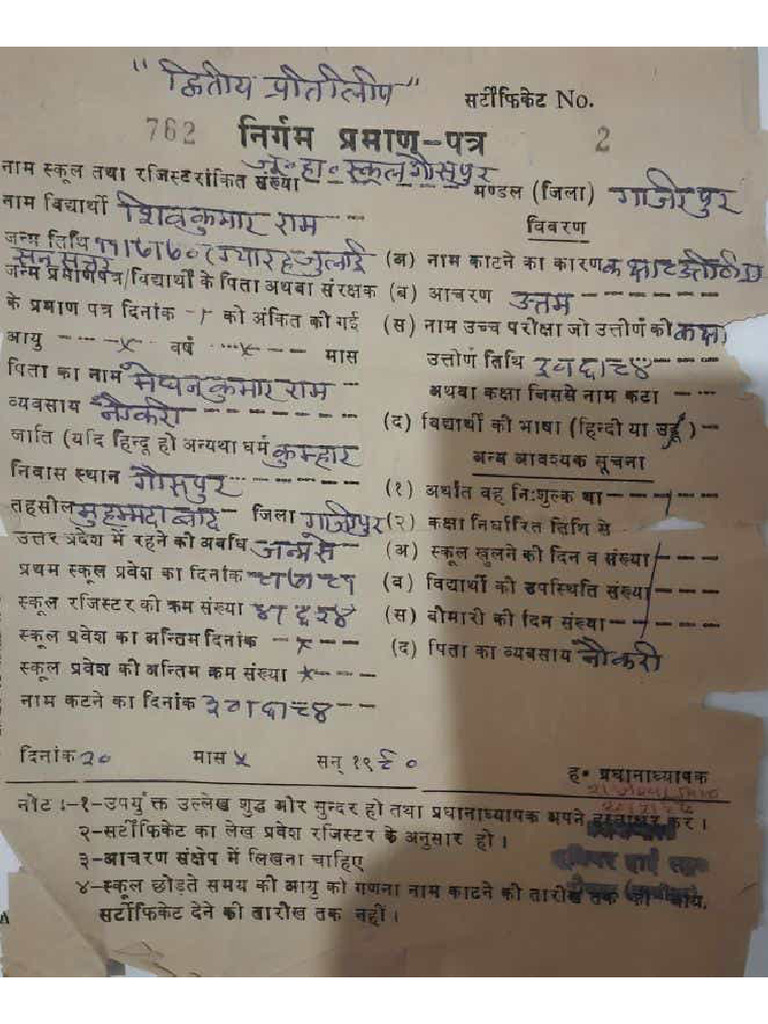 "द्वितीय प्रतिलिपि"
सर्टीफिकेट No.
762 निर्गम प्रमाण-पत्र 2
नाम स्कूल तथा रजिस्टरांकित संख्या जू॰ हा॰ स्कूल गौसपुर मण्डल (जिला) गाजीपुर
नाम विद्यार्थी शिवकुमार राम
विवरण
जन्म तिथि ११।७।७० ग्यारह जुलाई
सन सत्तर
(अ) नाम काटने का कारण
जन्म प्रमाणपत्र/विद्यार्थी के पिता अथवा संरक्षक
(ब) आचरण उत्तम
के प्रमाण पत्र दिनांक -×- को अंकित की गई
(स) नाम उच्च परीक्षा जो उत्तीर्ण की कक्षा
आयु ---×-- वर्ष ---×--- मास
उत्तीर्ण तिथि ३०।६।८४
पिता का नाम कुमार राम
अथवा कक्षा जिससे नाम कटा ---
व्यवसाय नौकरी
(द) विद्यार्थी की भाषा (हिन्दी या उर्दू)-
जाति (यदि हिन्दू हो अन्यथा धर्म कुम्हार
अन्य आवश्यक सूचना
निवास स्थान गौसपुर
(१) अर्थात वह निःशुल्क था
तहसील मुहम्मदाबाद जिला गाजीपुर
(२) कक्षा निर्धारित तिथि से
उत्तर प्रदेश में रहने की अवधि जन्म से
(अ) स्कूल खुलने की दिन व संख्या
प्रथम स्कूल प्रवेश का दिनांक
(ब) विद्यार्थी की उपस्थिति संख्या
स्कूल रजिस्टर की कम संख्या
(स) बीमारी की दिन संख्या
स्कूल प्रवेश का अन्तिम दिनांक --×--
(द) पिता का व्यवसाय नौकरी
स्कूल प्रवेश की अन्तिम कम संख्या ×---
नाम कटने का दिनांक ३०।६।८४--
दिनांक २० मास ५ सन् १९९०
ह॰ प्रधानाध्यापक
नोट :-१-उपर्युक्त उल्लेख शुद्ध और सुन्दर हो तथा प्रधानाध्यापक अपने हस्ताक्षर करे।
२-सर्टीफिकेट का लेख प्रवेश रजिस्टर के अनुसार हो।
३-आचरण संक्षेप में लिखना चाहिए
४-स्कूल छोड़ते समय की आयु की गणना नाम काटने की तारीख तक की जाय,
सर्टीफिकेट देने की तारीख तक नहीं।